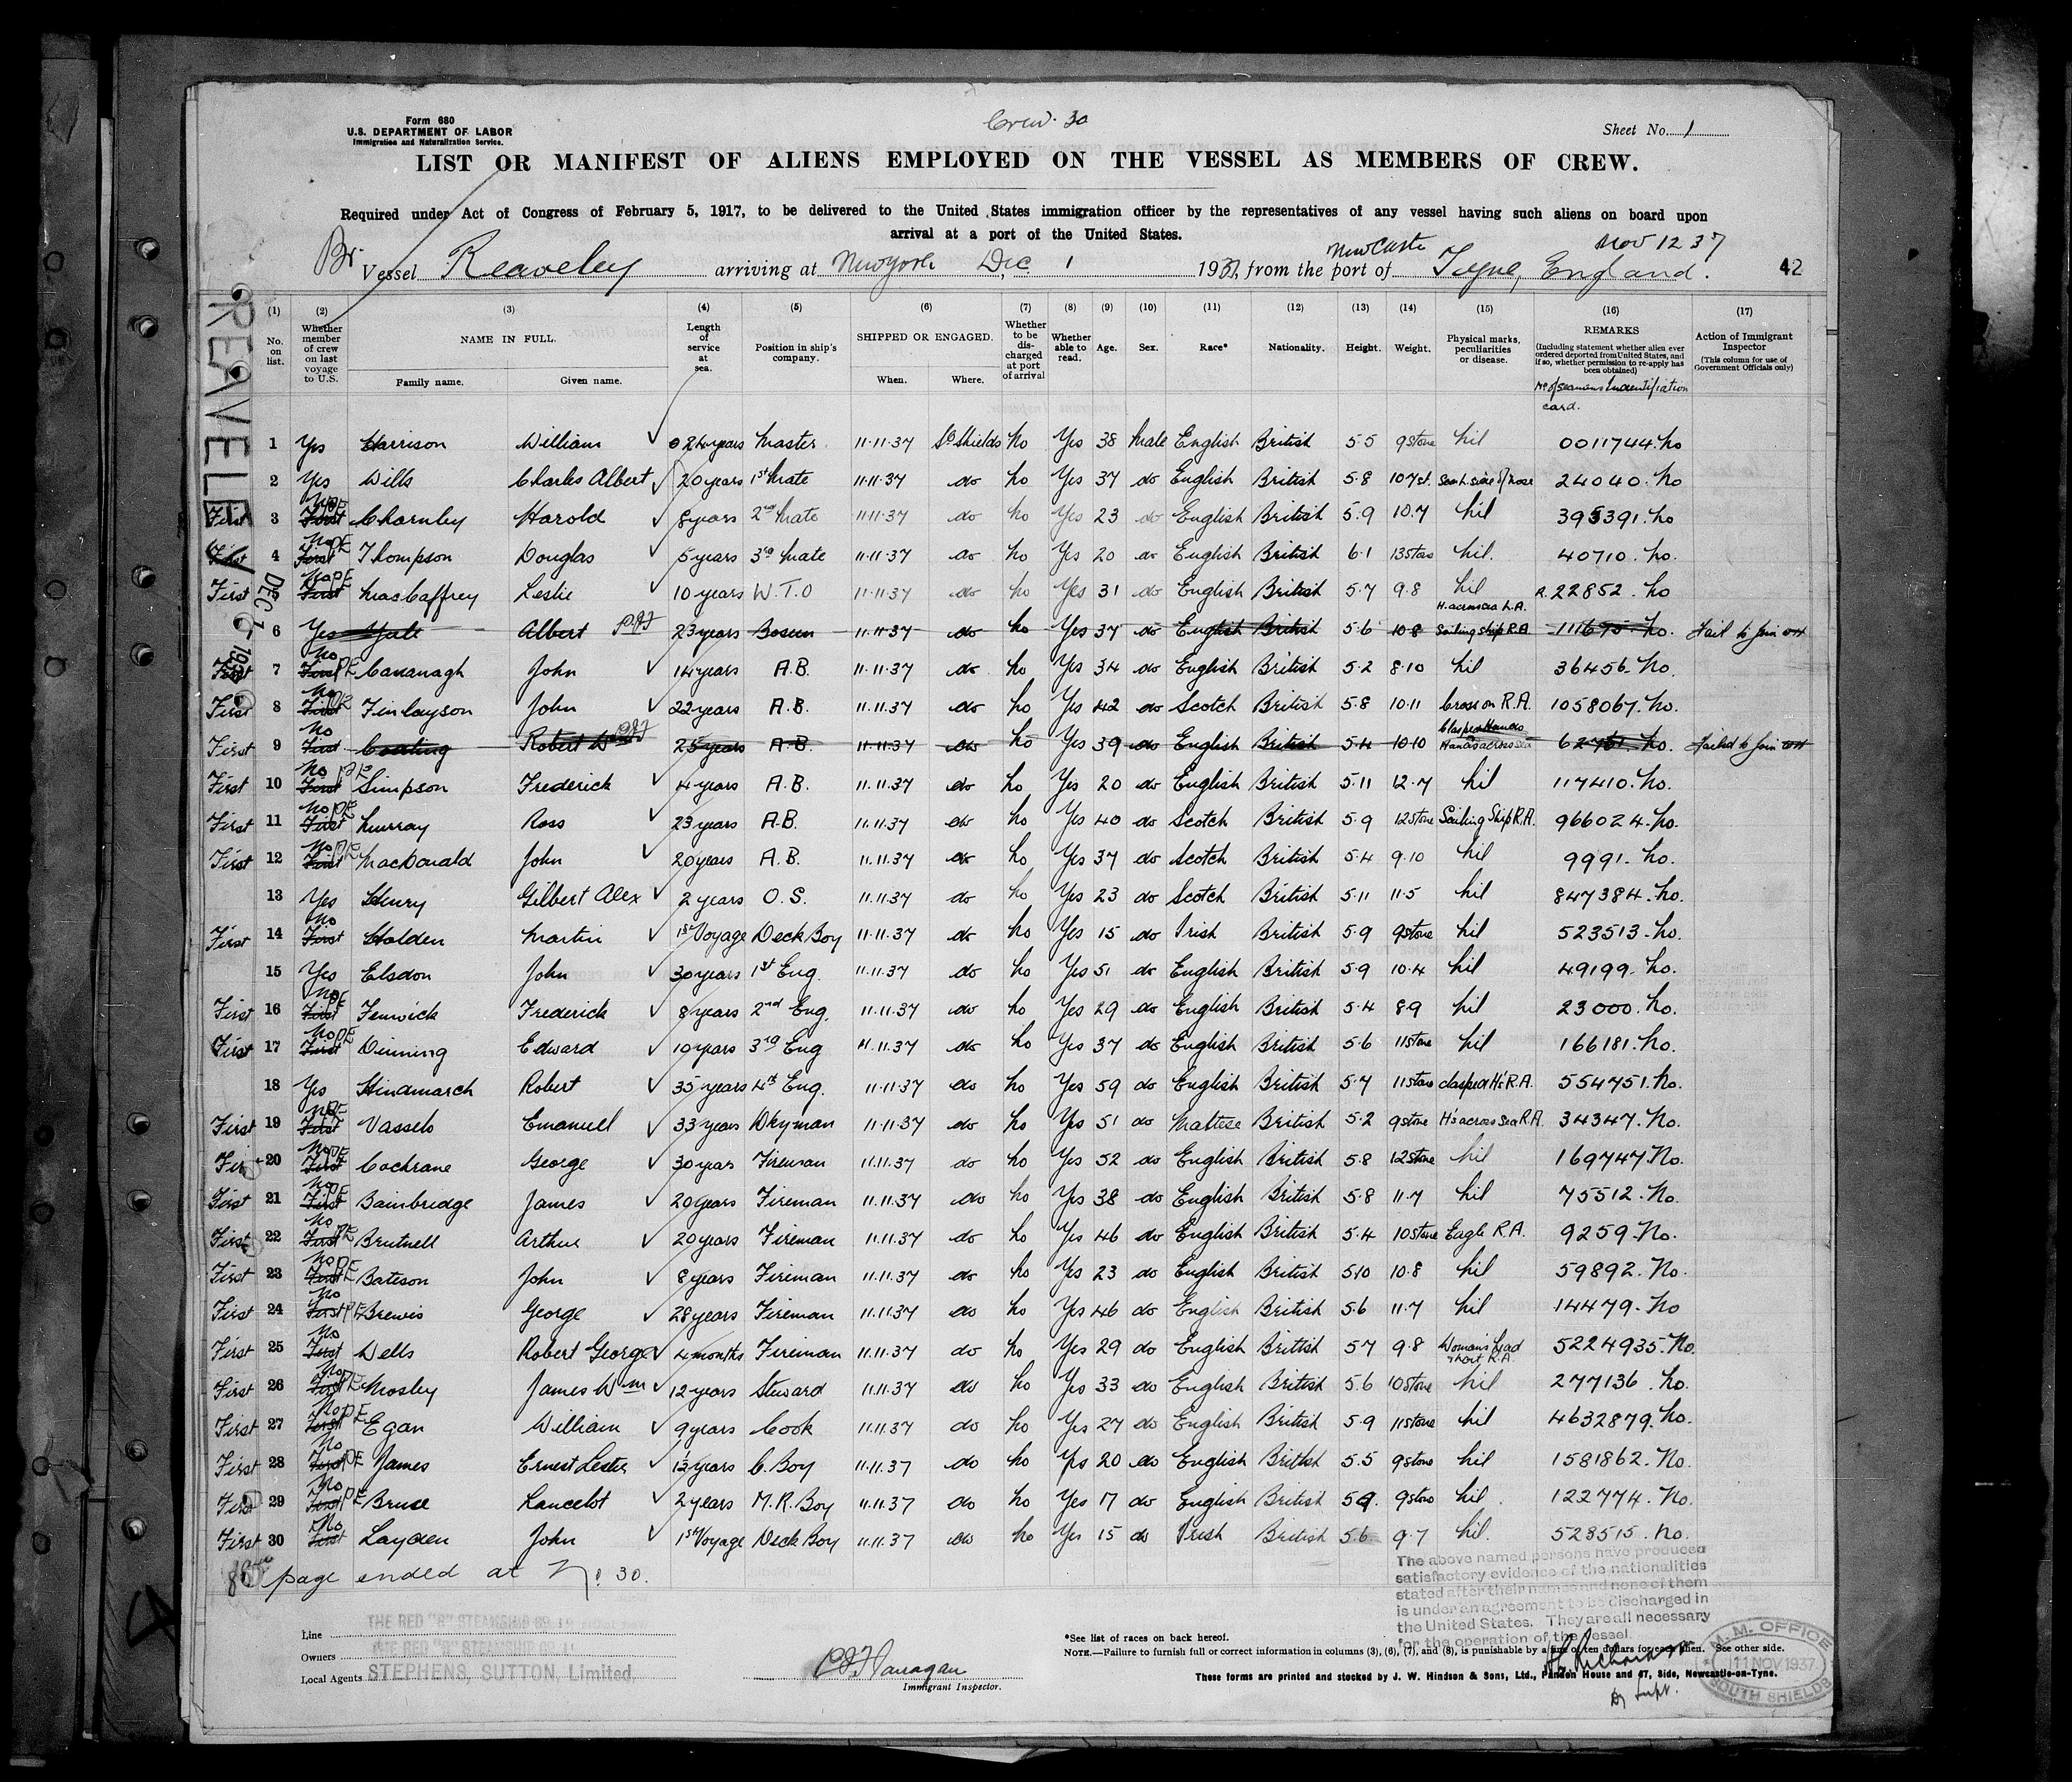 Form 680
U.S. DEPARTMENT OF LABOR
Immigration and Naturalization Service.
Crew. 30
Sheet No. 1
LIST OR MANIFEST OF ALIENS EMPLOYED ON THE VESSEL AS MEMBERS OF CREW.
Required under Act of Congress of February 5, 1917, to be delivered to the United States immigration officer by the representatives of any vessel having such aliens on board upon
arrival at a port of the United States.
Br Vessel Reaveley arriving at New York Dec 1 1937, from the port of Newcastle Tyne, England. Nov 12 37 42
REAVELEY
DEC 1 - 1937
(1) (2) (3) (4) (5) (6) (7) (8) (9) (10) (11) (12) (13) (14) (15) (16) (17)
No. on list. Whether member of crew on last voyage to U.S. NAME IN FULL. Family name. Given name. Length of service at sea. Position in ship's company. SHIPPED OR ENGAGED. When. Where. Whether to be discharged at port of arrival Whether able to read. Age. Sex. Race* Nationality. Height. Weight. Physical marks, peculiarities or disease. REMARKS (Including statement whether alien ever ordered deported from United States, and if so, whether permission to re-apply has been obtained) Action of Immigrant Inspector (This column for use of Government Officials only)
No of Seamens Indentification card.
1 Yes Harrison William 24 years Master 11.11.37 So Shields No Yes 38 Male English British 5.5 9 stone Nil 0011744. No
2 Yes Wills Charles Albert 20 years 1st Mate 11.11.37 do No Yes 37 do English British 5.8 10.7 st. Scar L side of nose 24040. No
First 3 No First Charnley Harold 8 years 2nd Mate 11.11.37 do No Yes 23 do English British 5.9 10.7 Nil 395391. No
First 4 No First Thompson Douglas 5 years 3rd Mate 11.11.37 do No Yes 20 do English British 6.1 13 stone Nil. 40710. No.
First 5 No First MacCaffrey Leslie 10 years W.T.O 11.11.37 do No Yes 31 do English British 5.7 9.8 Nil R.22852. No
6 Yes Yule Albert 23 years Bosun 11.11.37 do No Yes 37 do English British 5.6 10.8 H. across sea L.A. Sailing ship R.A. 111675. No. Fail to join
First 7 No First Cavanagh John 14 years A.B. 11.11.37 do No Yes 34 do English British 5.2 8.10 Nil 36456. No.
First 8 No First Finlayson John 22 years A.B. 11.11.37 do No Yes 42 do Scotch British 5.8 10.11 Cross on R.A. 1058067. No.
First 9 No First Robert 25 years A.B. 11.11.37 do No Yes 39 do English British 5.4 10.10 Clasped Hands Hands across Sea No. Failed to join
First 10 No First Simpson Frederick 4 years A.B. 11.11.37 do No Yes 20 do English British 5.11 12.7 Nil 117410. No.
First 11 No First Murray Ross 23 years A.B. 11.11.37 do No Yes 40 do Scotch British 5.9 12 stone Sailing Ship R.A. 966024. No.
First 12 No First MacDonald John 20 years A.B. 11.11.37 do No Yes 37 do Scotch British 5.4 9.10 Nil 9991. No.
13 Yes Henry Gilbert Alex 2 years O.S. 11.11.37 do No Yes 23 do Scotch British 5.11 11.5 Nil 847384. No.
First 14 No First Holden Martin 1st Voyage Deck Boy 11.11.37 do No Yes 15 do Irish British 5.9 9 stone Nil 523513. No.
15 Yes Elsdon John 30 years 1st Eng. 11.11.37 do No Yes 51 do English British 5.9 10.4 Nil 49199. No.
First 16 No First Fenwick Frederick 8 years 2nd Eng. 11.11.37 do No Yes 29 do English British 5.4 8.9 Nil 23000. No.
First 17 No First Dinning Edward 19 years 3rd Eng 11.11.37 do No Yes 37 do English British 5.6 11 stone Nil 166181. No.
18 Yes Hindmarch Robert 35 years 4th Eng. 11.11.37 do No Yes 59 do English British 5.7 11 stone Clasped H's R.A. 554751. No.
First 19 No First Vassels Emanuel 33 years Dkyman 11.11.37 do No Yes 51 do Maltese British 5.2 9 stone H's across Sea R.A. 34347. No.
First 20 No First Cochrane George 30 years Fireman 11.11.37 do No Yes 52 do English British 5.8 12 stone Nil 169747 No.
First 21 No First Bainbridge James 20 years Fireman 11.11.37 do No Yes 38 do English British 5.8 11.7 Nil 75512. No.
First 22 No First Brutnell Arthur 20 years Fireman 11.11.37 do No Yes 46 do English British 5.4 10 stone Eagle R.A. 9259. No.
First 23 No First Bateson John 8 years Fireman 11.11.37 do No Yes 23 do English British 5.10 10.8 Nil 59892. No.
First 24 No First Brewis George 28 years Fireman 11.11.37 do No Yes 46 do English British 5.6 11.7 Nil 14479. No
First 25 No First Wells Robert George 4 months Fireman 11.11.37 do No Yes 29 do English British 5.7 9.8 Woman's head R.A. 5224935. No.
First 26 No First Mosley James Wm 12 years Steward 11.11.37 do No Yes 33 do English British 5.6 10 stone Nil 277136. No.
First 27 No First Egan William 9 years Cook 11.11.37 do No Yes 27 do English British 5.9 11 stone Nil 4632879. No.
First 28 No First James Ernest Lester years C. Boy 11.11.37 do No Yes 20 do English British 5.5 9 stone Nil 1581862. No.
First 29 No First Bruce Lancelot 2 years M.R. Boy 11.11.37 do No Yes 17 do English British 5.9. 9 stone Nil 122774. No.
First 30 No First Layden John 1st Voyage Deck Boy 11.11.37 do No Yes 15 do Irish British 5.6 9.7 Nil. 528515. No.
page ended at No. 30.
The above named persons have produced
satisfactory evidence of the nationalities
stated after their names and none of them
is under an agreement to be discharged in
the United States. They are all necessary
for the operation of the vessel.
Line THE RED "R" STEAMSHIP CO. Ld
Owners THE RED "R" STEAMSHIP CO. Ld
Local Agents STEPHENS, SUTTON, Limited,
P J Flanagan
Immigrant Inspector.
*See list of races on back hereof.
NOTE.—Failure to furnish full or correct information in columns (3), (6), (7), and (8), is punishable by a fine of ten dollars for each alien. See other side.
These forms are printed and stocked by J. W. Hindson & Sons, Ltd., Pandon House and 47, Side, Newcastle-on-Tyne.
Richardson
Dy Supt.
M.M. OFFICE
11 NOV 1937
SOUTH SHIELDS